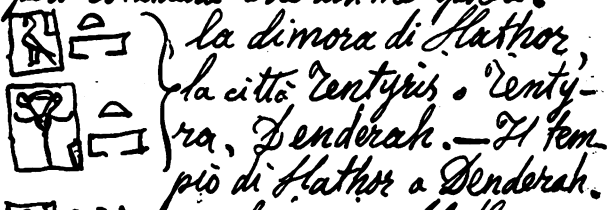 la dimora di Hathor,
la città Tentyris o Tenty-
ra, Denderah. — Il tem-
piò di Hathor a Denderah.